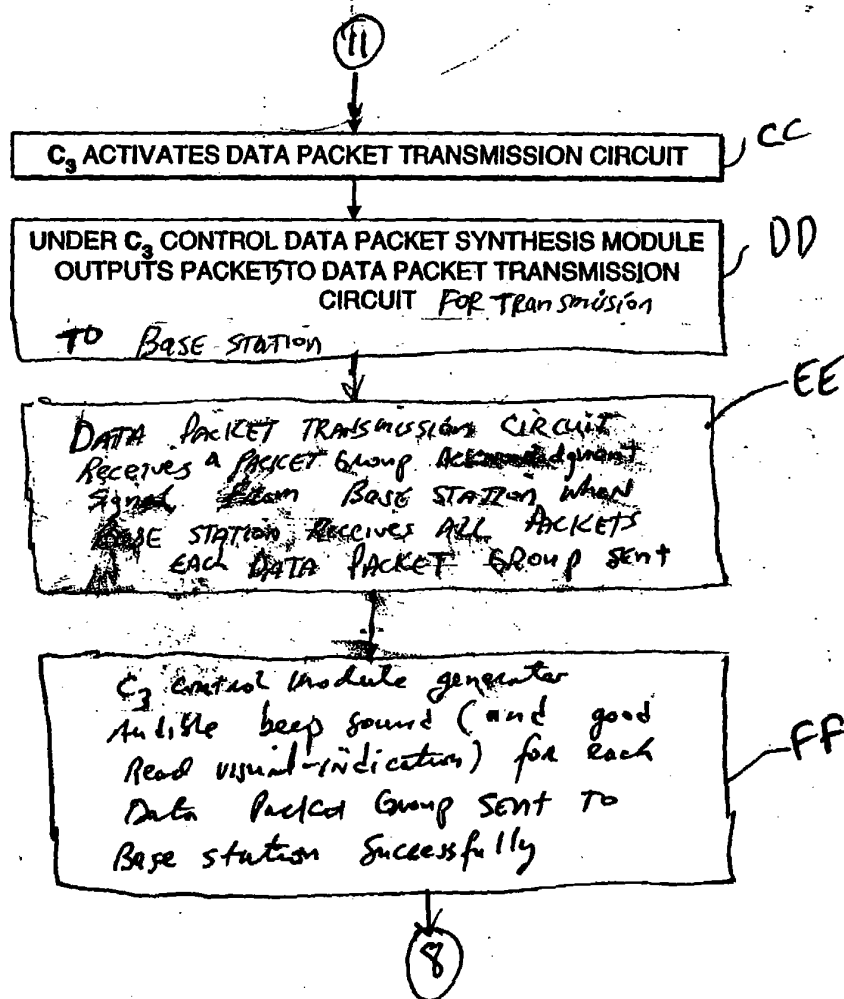 11
C₃ ACTIVATES DATA PACKET TRANSMISSION CIRCUIT
CC
UNDER C₃ CONTROL DATA PACKET SYNTHESIS MODULE
OUTPUTS PACKETS TO DATA PACKET TRANSMISSION
CIRCUIT FOR Transmision
TO BASE STATION
DD
DATA PACKET TRANSMISSION CIRCUIT
Receives a PACKET Group
Signal From BASE STATION when
BASE STATION Receives ALL PACKETS
EACH DATA PACKET GROUP SENT
EE
C₃ control module generates
Audible beep sound (and good
Read visual-indication) for each
Data Packet Group SENT TO
Base station Successfully
FF
8